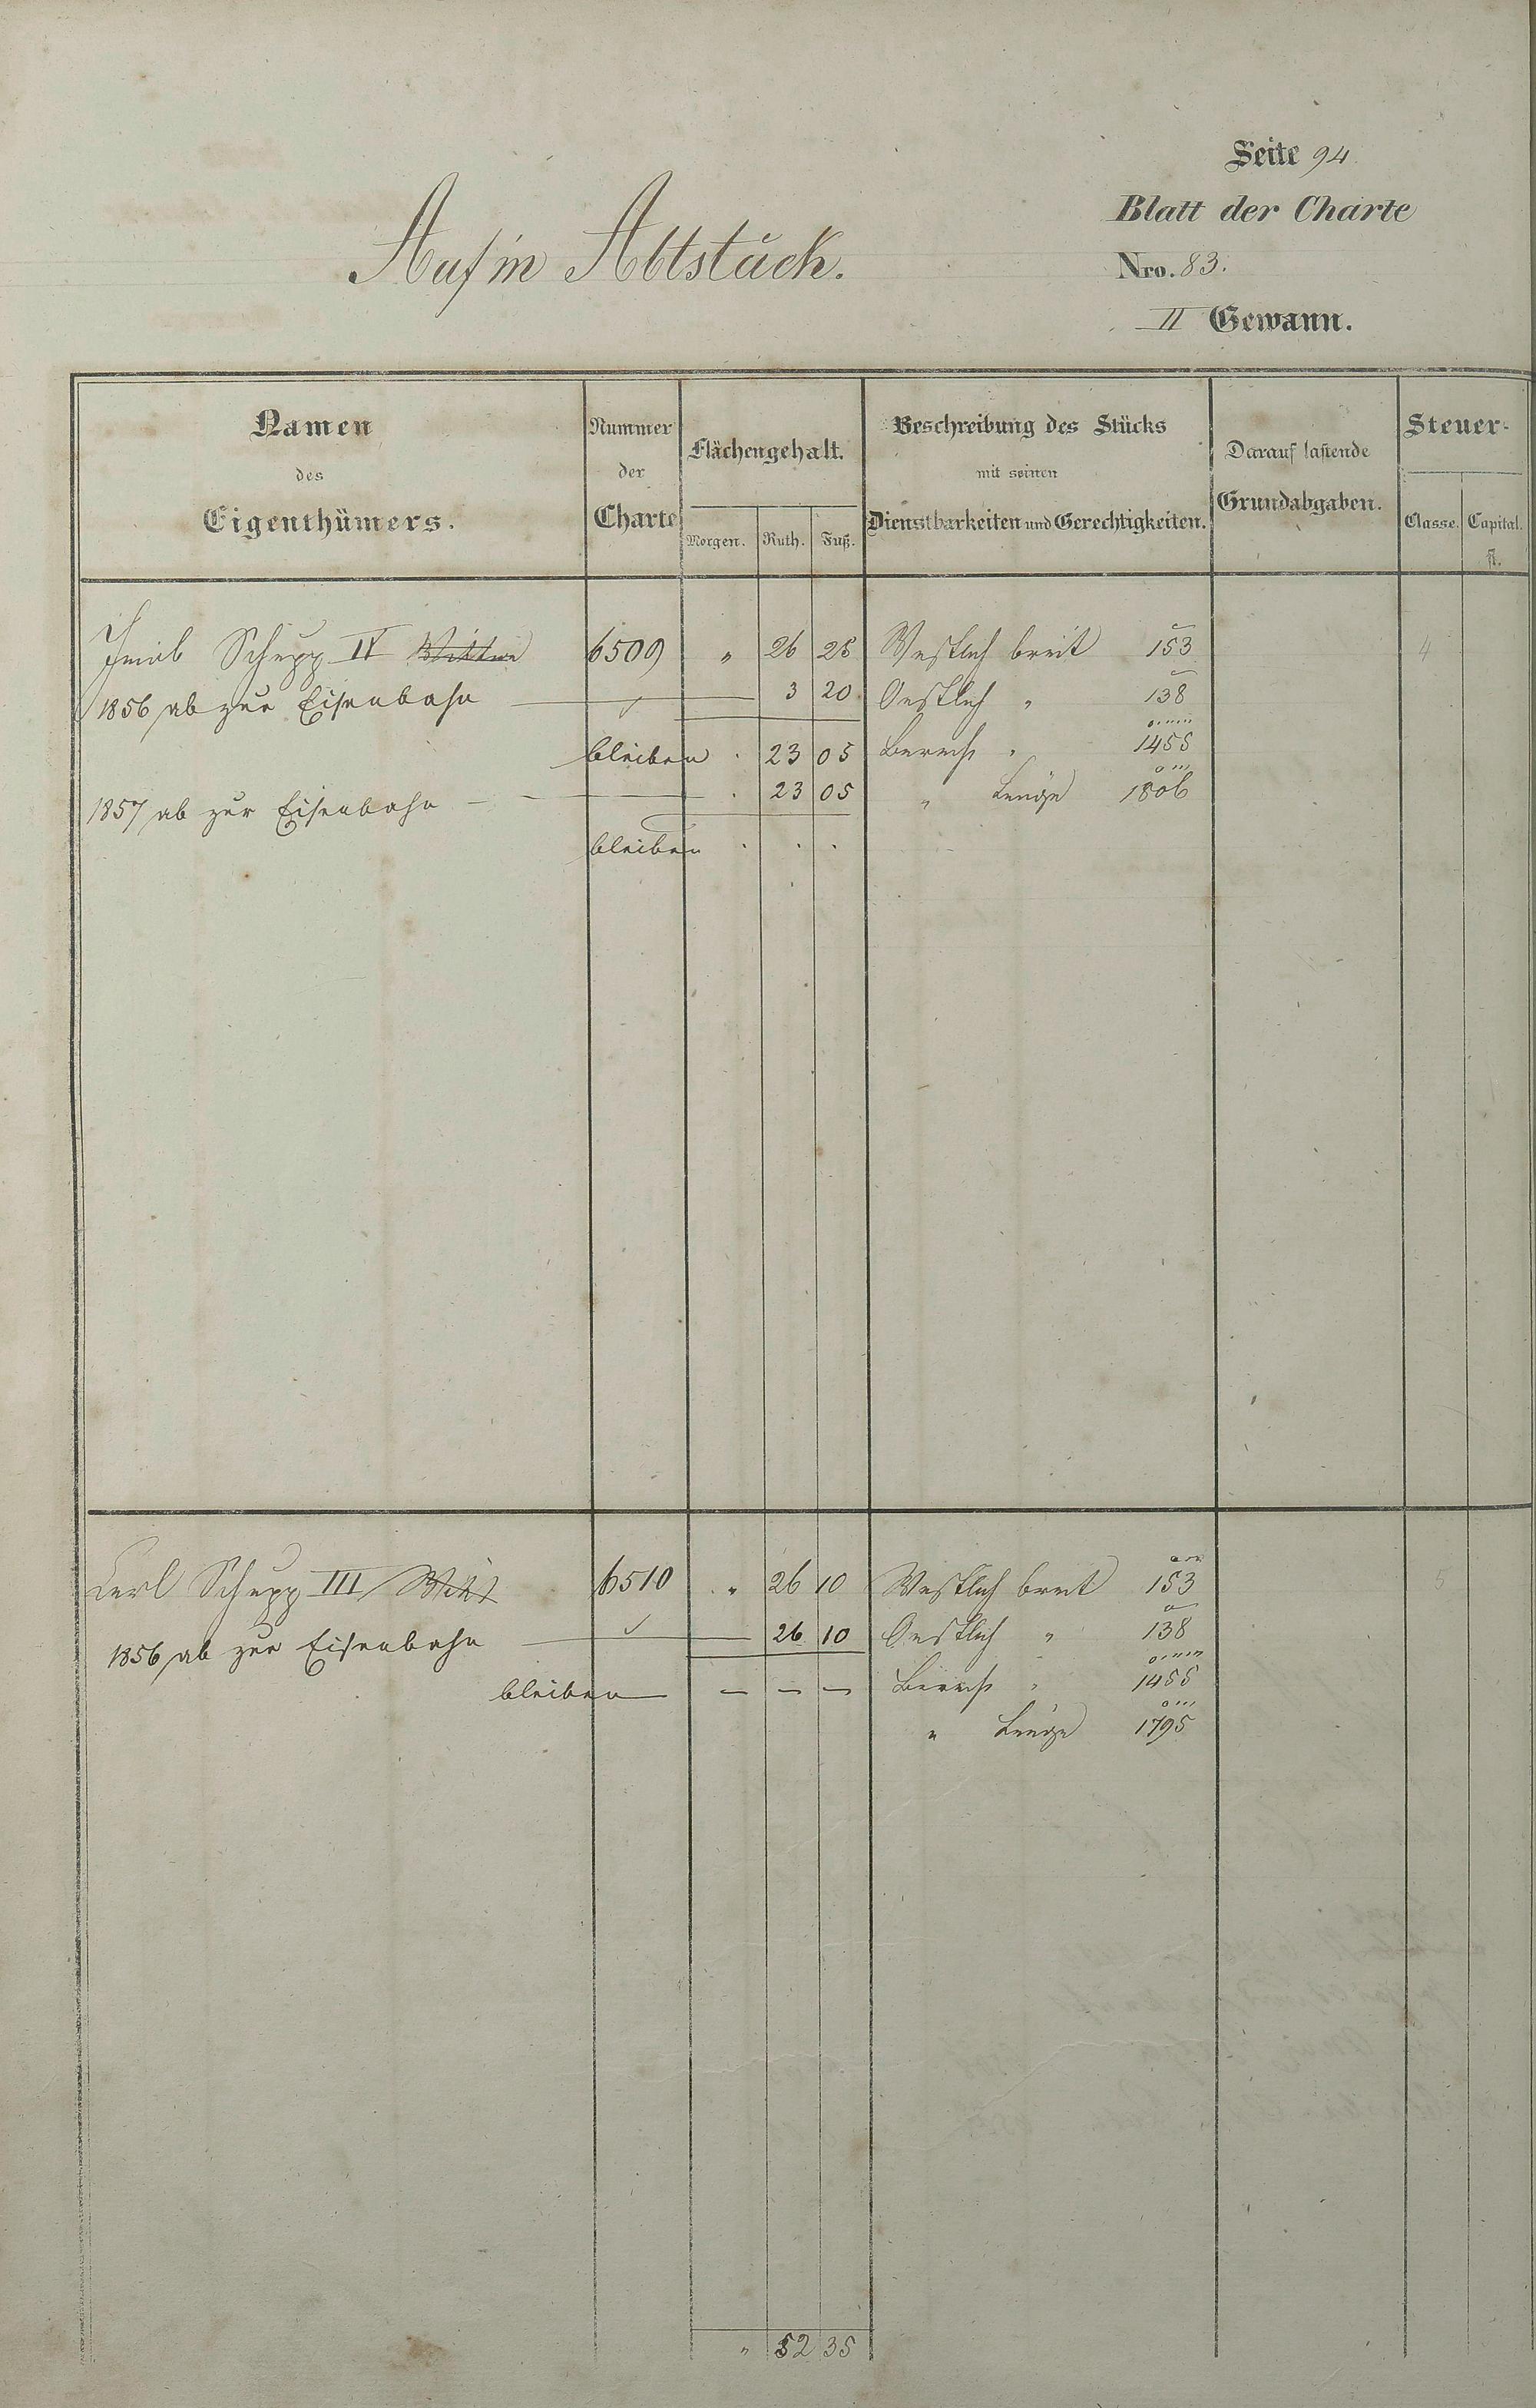 Seite 94
Blatt der Charte
Auf'm Abtstück.
Nro. 83.
II Gewann.
Namen des Eigenthümers.
Nummer der Charte
Flächengehalt.
Morgen. Ruth. Fuß.
Beschreibung des Stücks mit seinen Dienstbarkeiten und Gerechtigkeiten.
Darauf lastende Grundabgaben.
Steuer-
Classe. Capital. fl.
Jacob Schupp IV Wittwe 6509 " 26 25 Westlich breit 153 4
1856 ab zur Eisenbahn 3 20 Oestlich " 138
bleiben . 23 05 Berech. " 1455
1857 ab zur Eisenbahn . 23 05 " Länge 1806
bleiben . . .
Carl Schupp III Witt 6510 " 26 10 Westlich breit 153 5
1856 ab zur Eisenbahn 26 10 Oestlich " 138
bleiben — — — Berech. " 1455
" Länge 1795
" 52 35